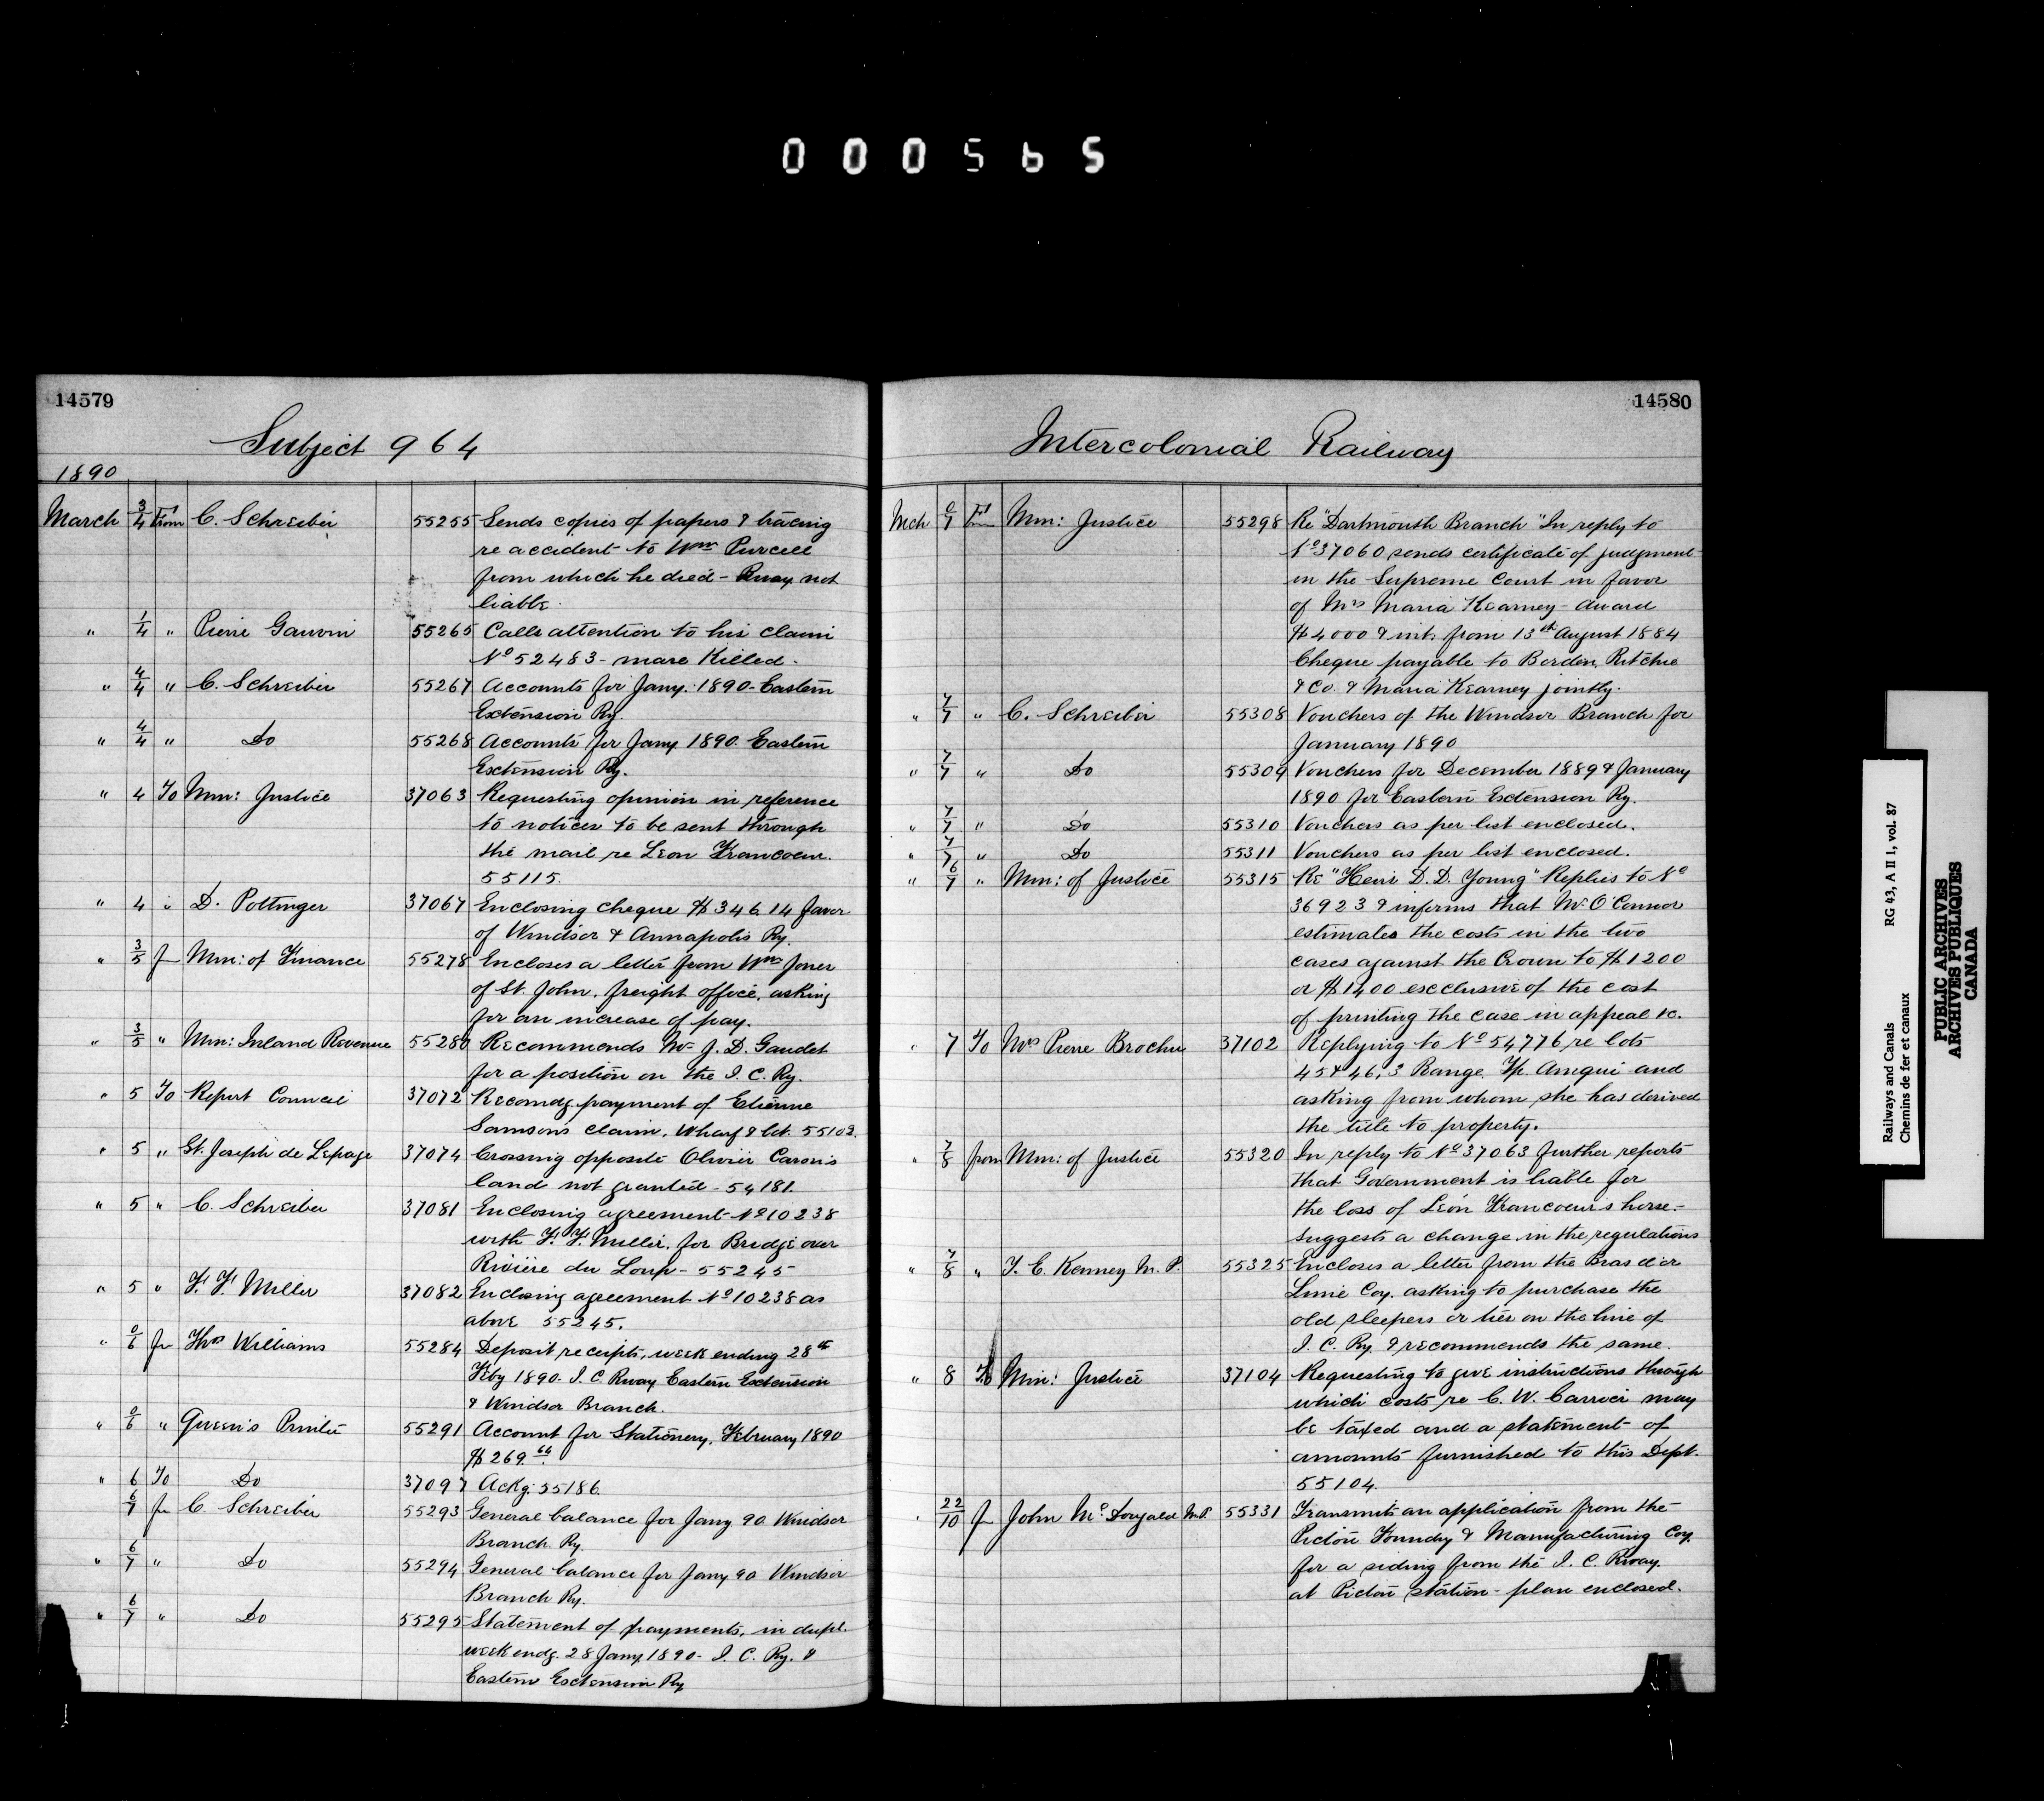 000565
14579
Subject 964
1890
March 3/4 From C. Schreiber 55255 Sends copies of papers & tracing
re accident to Wm Purcell
from which he died - Rway not
liable.
" 1/4 " Pierre Gauvin 55265 Calls attention to his claim
No 52483 - mare killed.
" 4/4 " C. Schreiber 55267 Accounts for Jany. 1890 - Eastern
Extension Ry.
" 4/4 " Do 55268 Accounts for Jany 1890. Eastern
Extension Ry.
" 4 To Min: Justice 37063 Requesting opinion in reference
to notices to be sent through
the mail re Leon Francoeur.
55115.
" 4 " D. Pottinger 37067 Enclosing cheque $346.14 favor
of Windsor & Annapolis Ry.
" 3/5 fr Min: of Finance 55278 Encloses a letter from Wm Jones
of St. John, freight office, asking
for an increase of pay.
" 3/5 " Min: Inland Revenue 55280 Recommends Mr J. D. Gaudet
for a position on the I. C. Ry.
" 5 To Report Council 37072 Recomdg. payment of Etienne
Samson's claim, Wharf & lot. 55102.
" 5 " St. Joseph de Lepage 37074 Crossing opposite Olivier Caron's
land not granted - 54181.
" 5 " C. Schreiber 37081 Enclosing agreement No 10238
with F. F. Miller, for Bridge over
Rivière du Loup - 55245
" 5 " F. F. Miller 37082 Enclosing agreement No 10238 as
above 55245.
" 0/6 fr Thos Williams 55284 Deposit receipts, week ending 28th
Feby 1890. I. C. Rway Eastern Extension
& Windsor Branch.
" 0/6 " Queen's Printer 55291 Account for Stationery, February 1890
$269.64.
" 6 To Do 37097 Ackg. 55186.
6/7 fr C. Schreiber 55293 General balance for Jany 90 Windsor
Branch Ry.
" 6/7 " Do 55294 General balance for Jany 90 Windsor
Branch Ry.
" 6/7 " Do 55295 Statement of payments, in dupl.
week endg. 28 Jany 1890 - I. C. Ry. &
Eastern Extension Ry
14580
Intercolonial Railway
Mch 0/7 From Min: Justice 55298 Re "Dartmouth Branch" In reply to
No 37060 sends certificate of judgment
in the Supreme Court in favor
of Mrs Maria Kearney - award
$4000 & int. from 13th August 1884
Cheque payable to Borden, Ritchie
& Co. & Maria Kearney jointly.
" 7/7 " C. Schreiber 55308 Vouchers of the Windsor Branch for
January 1890
" 7/7 " Do 55309 Vouchers for December 1889 & January
1890 for Eastern Extension Ry.
" 7/7 " Do 55310 Vouchers as per list enclosed.
" 7/7 " Do 55311 Vouchers as per list enclosed.
" 6/7 " Min: of Justice 55315 Re "Henri D. D. Young" Replies to No
36923 & informs that Mr O'Connor
estimates the costs in the two
cases against the Crown to $1200
or $1400 exclusive of the cost
of printing the case in appeal &c.
" 7 To Mrs Pierre Brochu 37102 Replying to No 54776 re lots
45 & 46, 3 Range Tp. Amqui and
asking from whom she has derived
the title to property.
" 7/8 from Min: of Justice 55320 In reply to No 37063 further reports
that Government is liable for
the loss of Léon Francoeur's horse -
suggests a change in the regulations
" 7/8 " T. E. Kenney M. P. 55325 Encloses a letter from the Bras d'or
Lime Coy. asking to purchase the
old sleepers or ties on the line of
I. C. Ry. & recommends the same.
" 8 To Min: Justice 37104 Requesting to give instructions through
which costs re C. W. Carrier may
be taxed and a statement of
amounts furnished to this Dept.
55104.
" 22/10 fr John McDougald M.P. 55331 Transmits an application from the
Pictou Foundry & Manufacturing Coy.
for a siding from the I. C. Rway.
at Pictou station - plan enclosed.
Railways and Canals RG 43, A II 1, vol. 87
Chemins de fer et canaux
PUBLIC ARCHIVES
ARCHIVES PUBLIQUES
CANADA